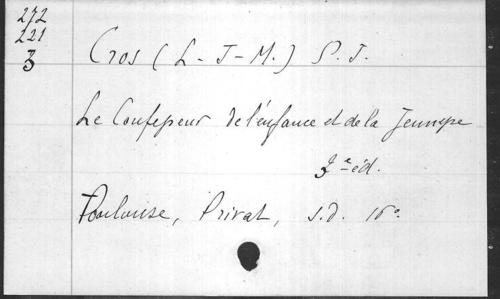 272
221
3
Cros (L-J-M.) S.J.
Le Confesseur de l'enfance et de la Jeunesse
3e éd.
Toulouse, Privat, s.d. 16°.